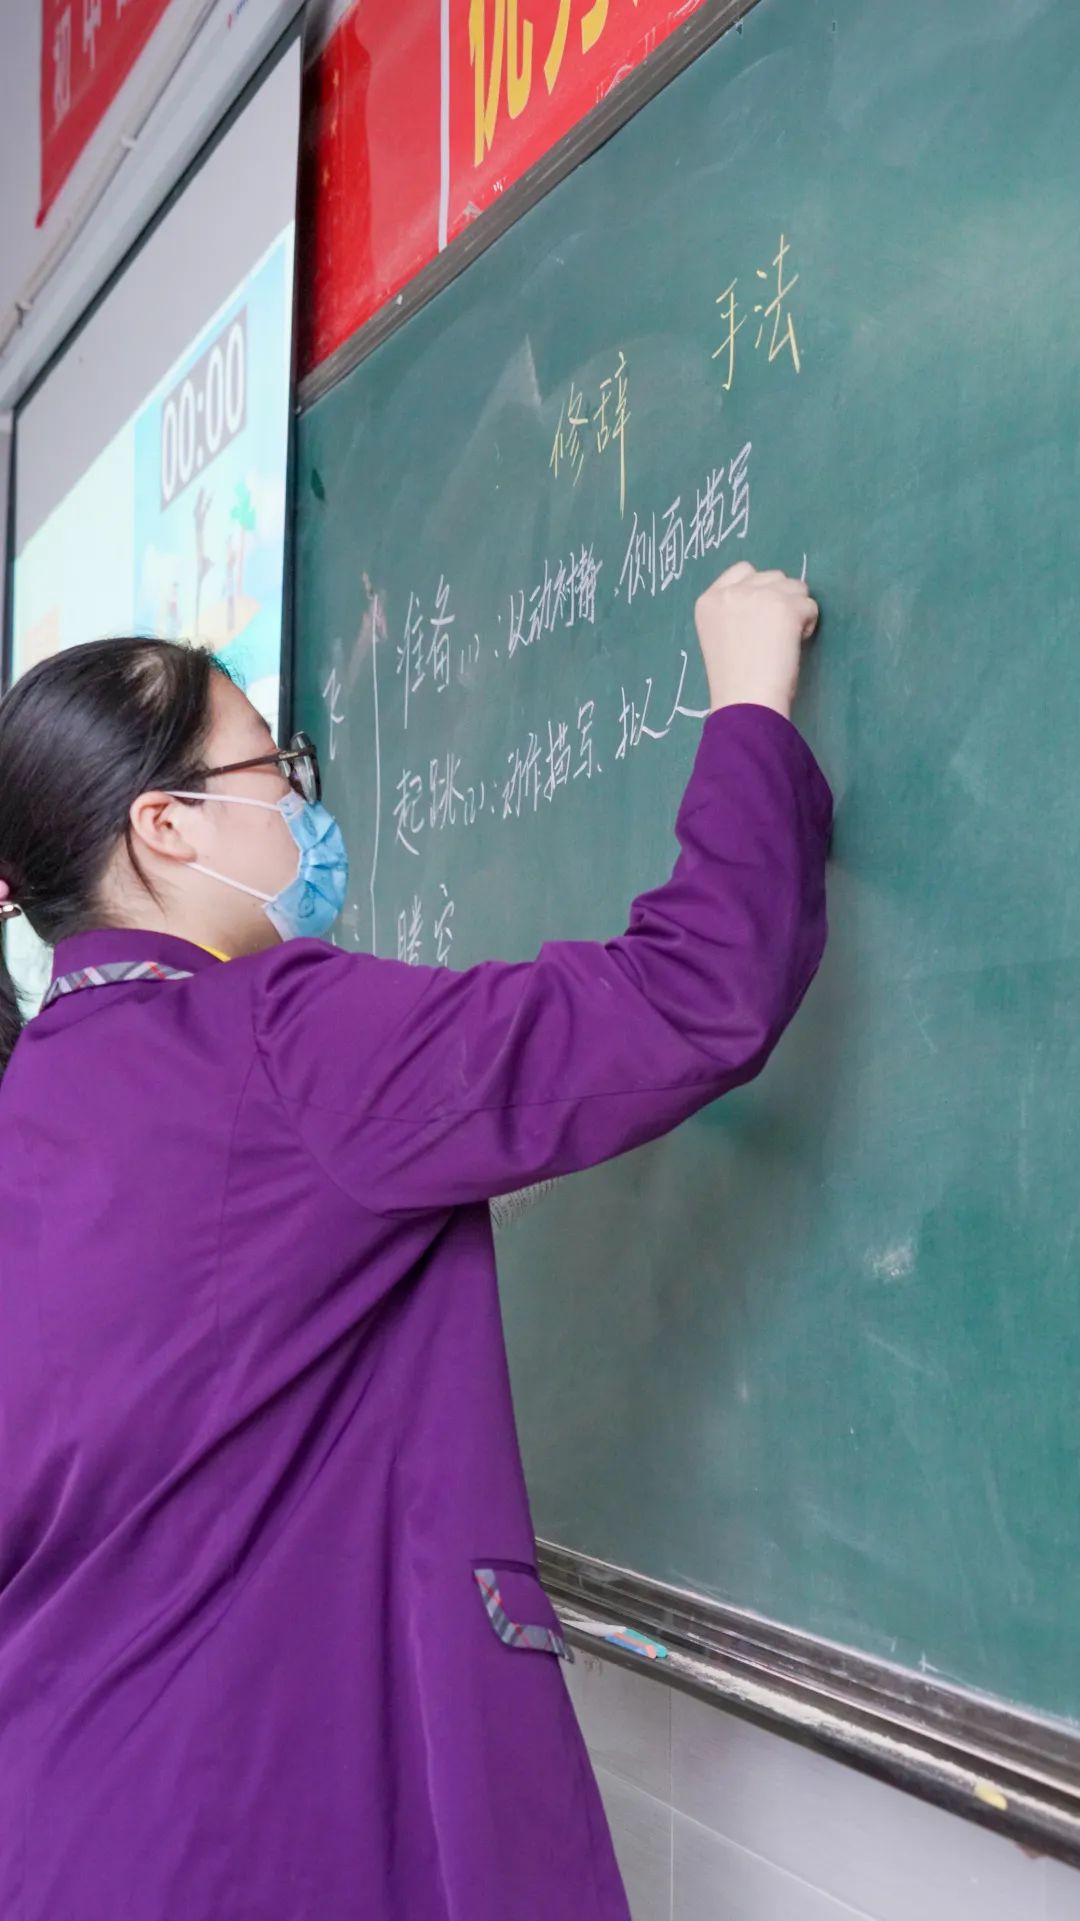 优
00:00
手法
修辞
准备(1):以动衬静、侧面描写
起跳(2):动作描写、拟人
飞
腾空